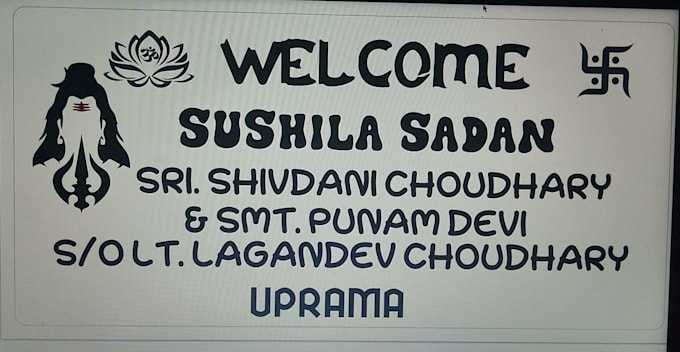 ॐ
WELCOME
SUSHILA SADAN
SRI. SHIVDANI CHOUDHARY
& SMT. PUNAM DEVI
S/O LT. LAGANDEV CHOUDHARY
UPRAMA